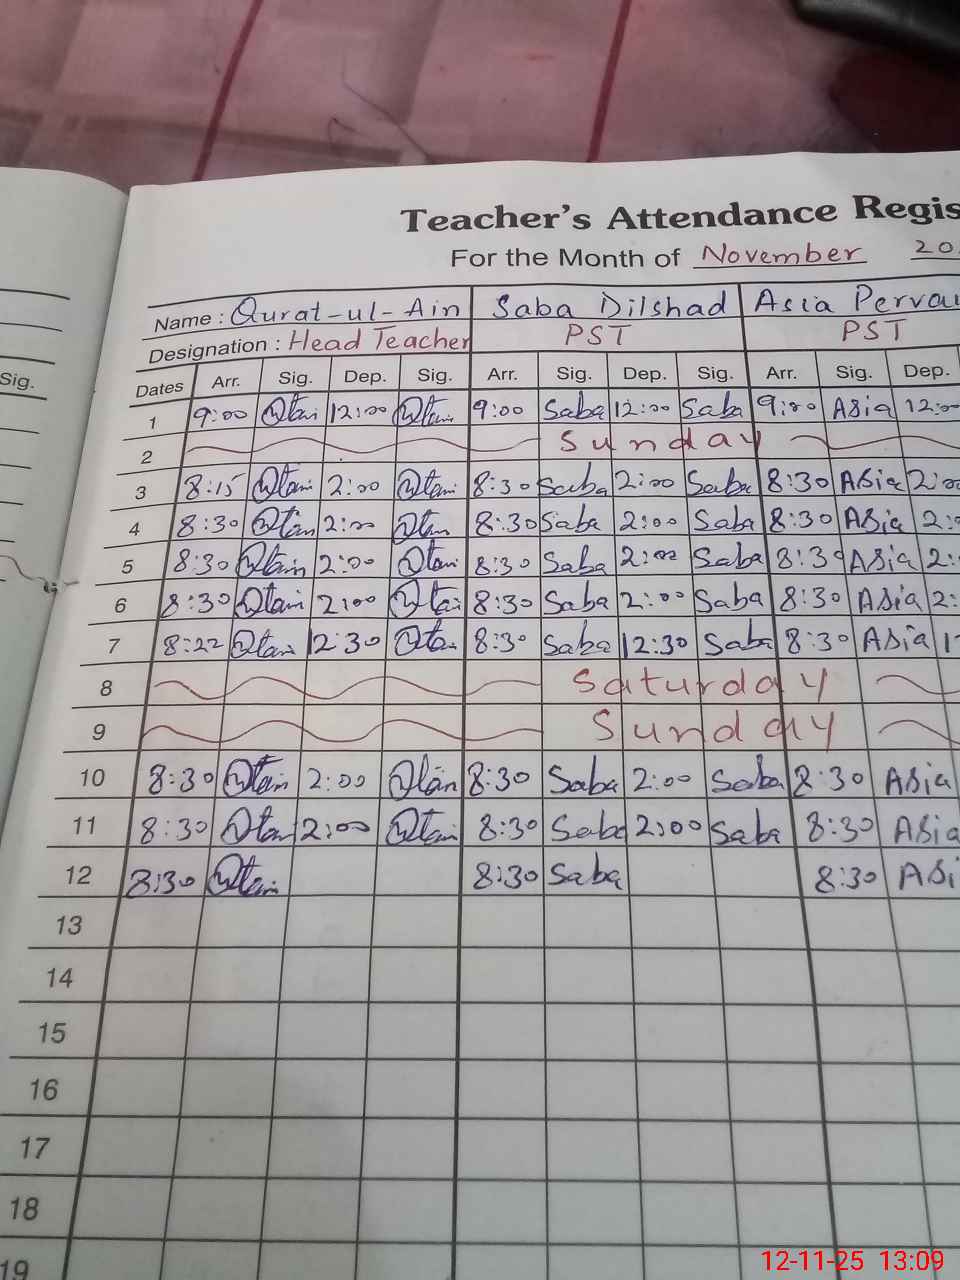 Teacher's Attendance Regis
For the Month of November 20
Name : Qurat-ul-Ain Saba Dilshad Asia Pervai
Designation : Head Teacher PST PST
Sig.
Dates Arr. Sig. Dep. Sig. Arr. Sig. Dep. Sig. Arr. Sig. Dep.
1 9:00 Qtain 12:00 Qtain 9:00 Saba 12:00 Saba 9:00 Asia 12:00
2 Sunday
3 8:15 Qtain 2:00 Qtain 8:30 Saba 2:00 Saba 8:30 Asia 2:00
4 8:30 Qtain 2:00 Qtain 8:30 Saba 2:00 Saba 8:30 Asia 2:
5 8:30 Qtain 2:00 Qtain 8:30 Saba 2:00 Saba 8:30 Asia 2:
6 8:30 Qtain 2:00 Qtain 8:30 Saba 2:00 Saba 8:30 Asia 2:
7 8:22 Qtain 12:30 Qtain 8:30 Saba 12:30 Saba 8:30 Asia 1
8 Saturday
9 Sunday
10 8:30 Qtain 2:00 Qtain 8:30 Saba 2:00 Saba 8:30 Asia
11 8:30 Qtain 2:00 Qtain 8:30 Saba 2:00 Saba 8:30 Asia
12 8:30 Qtain 8:30 Saba 8:30 Asi
13
14
15
16
17
18
19
12-11-25 13:09